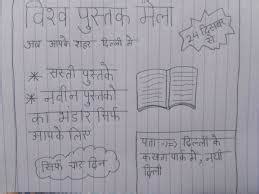 विश्व पुस्तक मेला
अब आपके शहर दिल्ली में
24 दिसंबर से
* सस्ती पुस्तकें
* नवीन पुस्तकों
का भंडार सिर्फ
आपके लिए
सिर्फ चार दिन
पता :-> दिल्ली के
पार्क में, नयी
दिल्ली